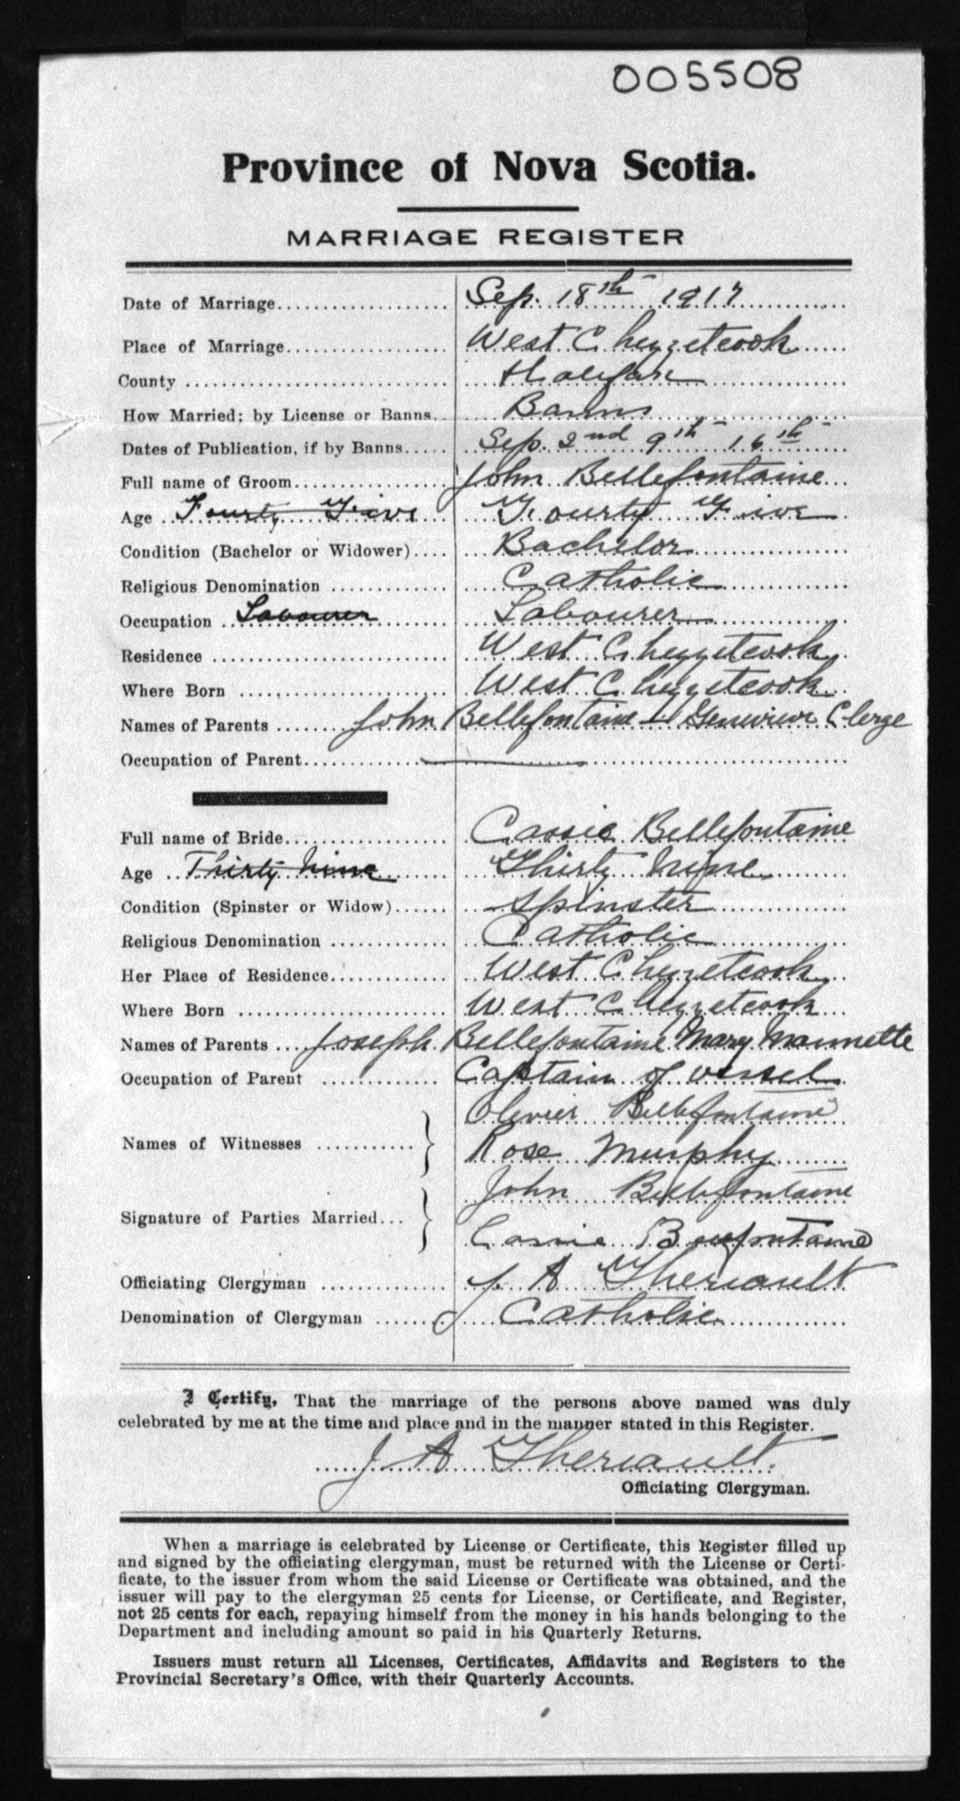 005508
Province of Nova Scotia.
MARRIAGE REGISTER
Date of Marriage Sep. 18th 1917
Place of Marriage West Chezzetcook
County Halifax
How Married; by License or Banns Banns
Dates of Publication, if by Banns Sep. 2nd 9th 16th
Full name of Groom John Bellefontaine
Age Fourty Five Fourty Five
Condition (Bachelor or Widower) Bachelor
Religious Denomination Catholic
Occupation Labourer Labourer
Residence West Chezzetcook
Where Born West Chezzetcook
Names of Parents John Bellefontaine Genevieve Clerge
Occupation of Parent
Full name of Bride Cassie Bellefontaine
Age Thirty Nine Thirty Nine
Condition (Spinster or Widow) Spinster
Religious Denomination Catholic
Her Place of Residence West Chezzetcook
Where Born West Chezzetcook
Names of Parents Joseph Bellefontaine Mary Mannette
Occupation of Parent Captain of vessel
Olivier Bellefontaine
Names of Witnesses
Rose Murphy
John Bellefontaine
Signature of Parties Married
Cassie
Officiating Clergyman J. A Theriault
Denomination of Clergyman Catholic
I Certify, That the marriage of the persons above named was duly
celebrated by me at the time and place and in the manner stated in this Register.
J A Theriault.
Officiating Clergyman.
When a marriage is celebrated by License or Certificate, this Register filled up
and signed by the officiating clergyman, must be returned with the License or Certi-
ficate, to the issuer from whom the said License or Certificate was obtained, and the
issuer will pay to the clergyman 25 cents for License, or Certificate, and Register,
not 25 cents for each, repaying himself from the money in his hands belonging to the
Department and including amount so paid in his Quarterly Returns.
Issuers must return all Licenses, Certificates, Affidavits and Registers to the
Provincial Secretary's Office, with their Quarterly Accounts.